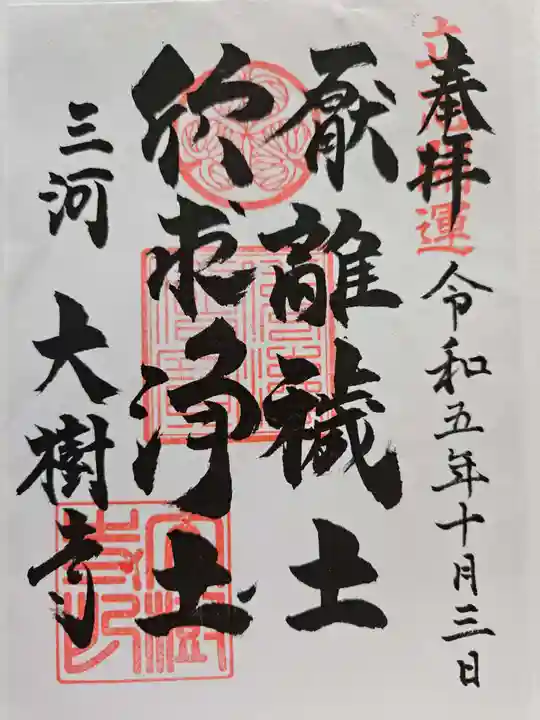 奉拝
令和五年十月三日
厭離穢土
欣求浄土
三河 大樹寺